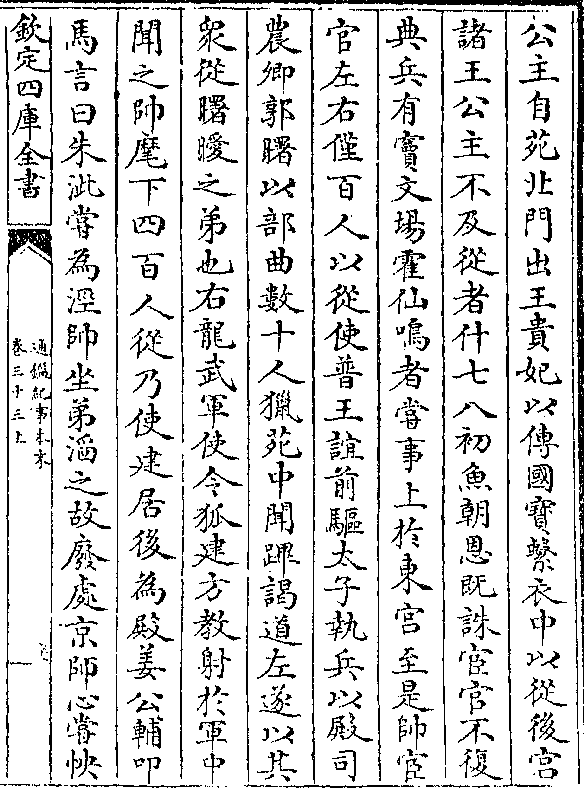 公主自苑北門出王貴妃以傳國寶繫衣中以從後宮
諸王公主不及從者什七八初魚朝恩既誅宦官不復
典兵有竇文場霍仙鳴者嘗事上於東宮至是帥宦
官左右僅百人以從使普王誼前驅太子執兵以殿司
農卿郭曙以部曲數十人獵苑中聞蹕謁道左遂以其
衆從曙曖之弟也右龍武軍使令狐建方教射於軍中
聞之帥麾下四百人從乃使建居後為殿姜公輔叩
馬言曰朱泚嘗為涇帥坐弟滔之故廢處京師心嘗怏
欽定四庫全書
通鑑紀事本末
卷三十三上